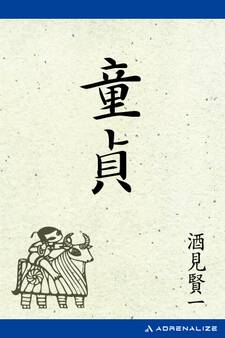 童貞
酒見賢一
ADRENALIZE